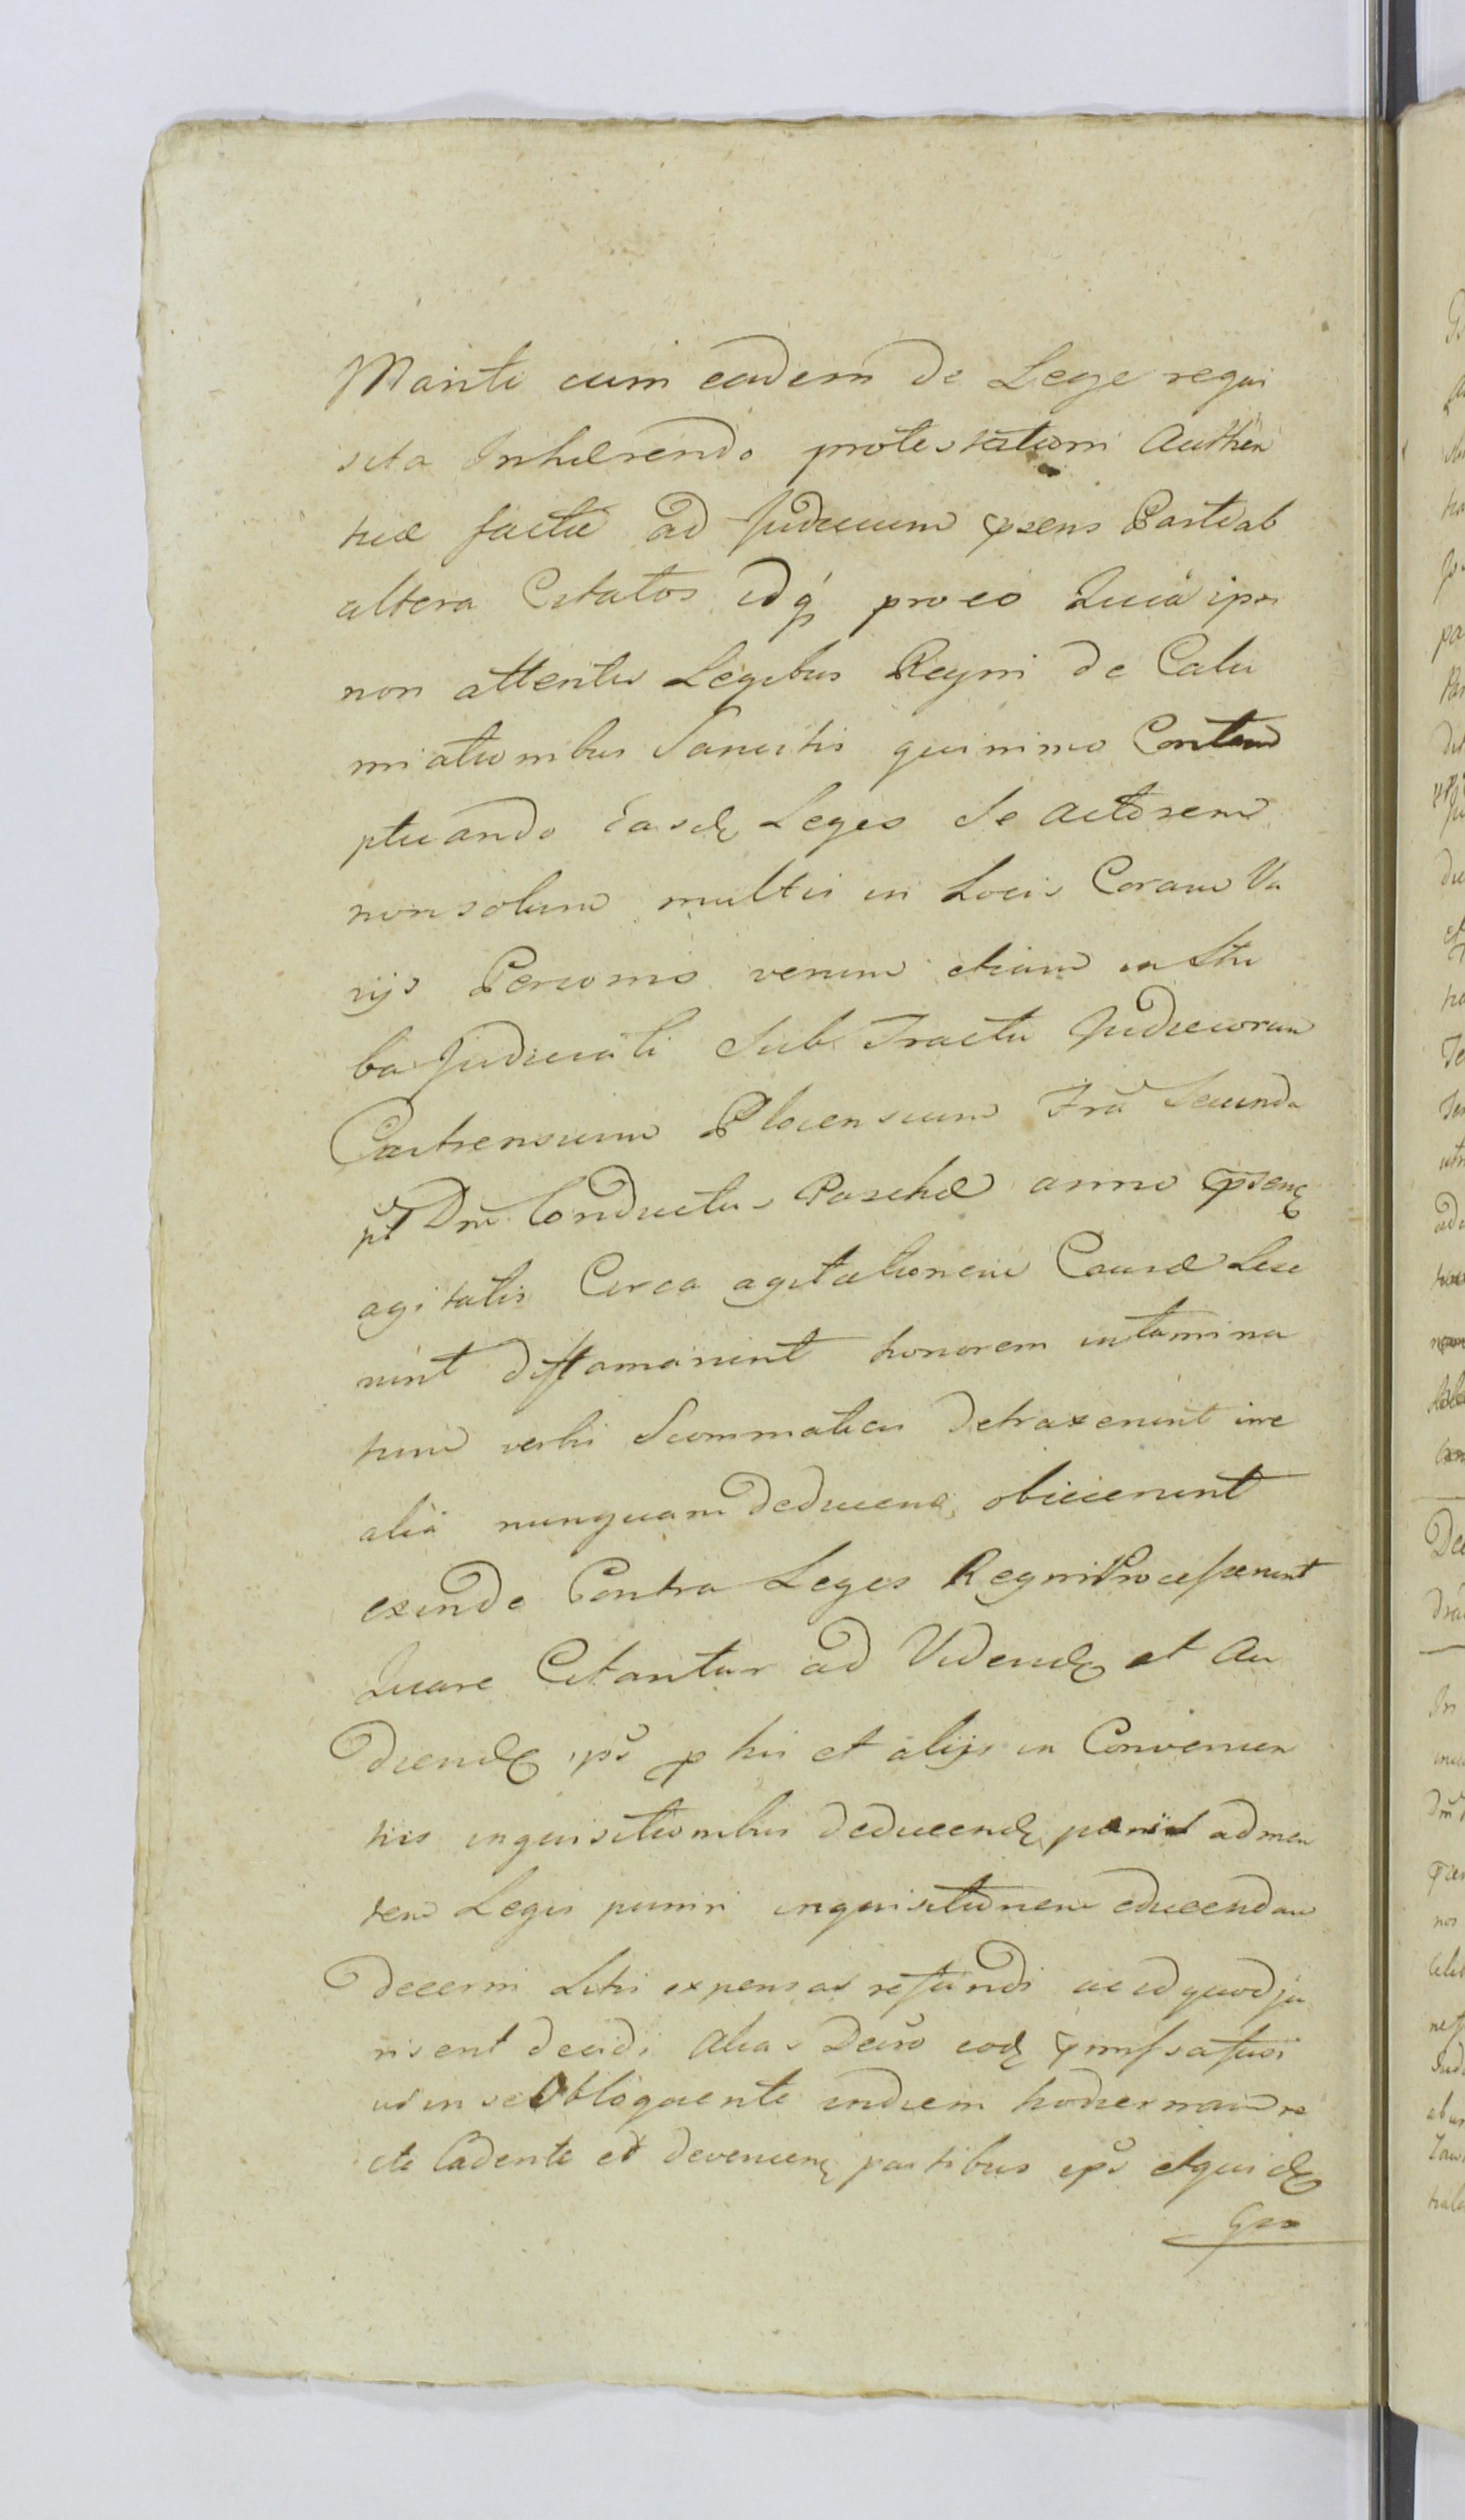 Mariti cum eadem de Lege requi
sita Inhærendo protestationi Authen
ticæ factæ ad Judicium pꝛens Parte ab
altera Citatos idq́ pro eo Quia ipsi
non attentis Legibus Regni de Calu
mniationibus Sancitis quinimo Contem
ptuando Easdꝫ Leges Se Actorem
nonsolum multis in Locis Coram Va
rijs Personis verum etiam in Stu
ba Judiciali Sub Tractu Judiciorum
Castrensium Plocensium Fria Secunda
pt Dnicã Conductus Paschæ anno pꝛenꝫ
agitatis Circa agitationem Causæ Lese
runt diffamarunt honorem intamina
tum verbis Scommaticis detraxerunt irre
alia nunquam deducenꝫ obiicierunt
exinde Contra Leges Regni Processerunt
Quare Citantur ad Videndꝫ et Au
diendꝫ ips p his et alijs in Convenien
tiis inquisitionibus deducendꝫ pænis ad men
tem Legis puniri inquisitionem educendam
decerni Litis expensas refundi ac id quod ju
ris erit decidi Alias Decro eodꝫ
in se Obloquente in diem hodiernam re
cte Cadente et devenienꝫ partibus ips et quidꝫ